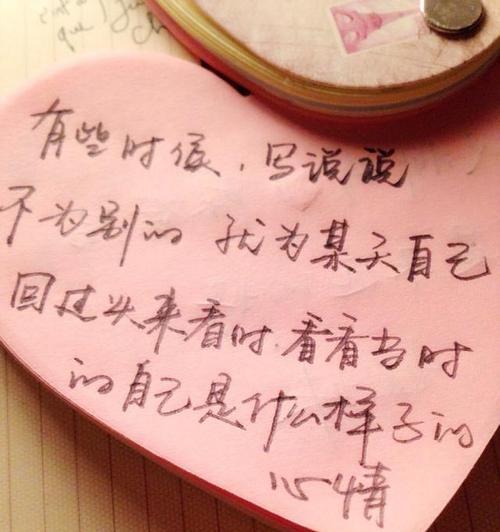 有些时候，写说说
不为别的 就为某天自己
回过头来看时.看看当时
的自己是什么样子的
心情